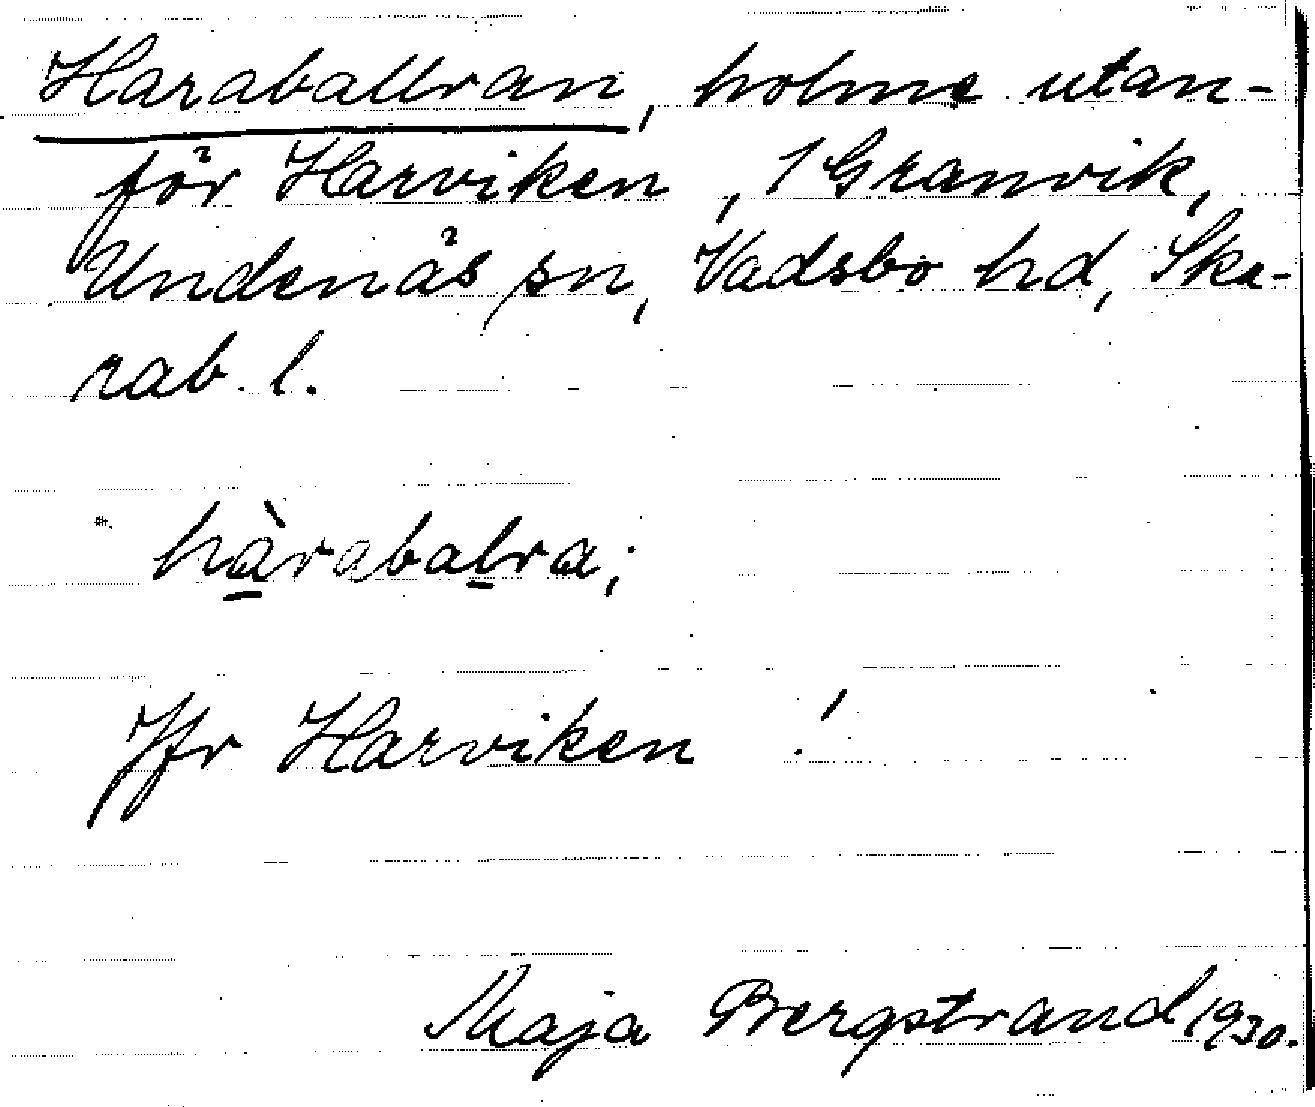 Haraballran, holme utan-
för Harviken, 1 Granvik,
Undenäs sn, Vadsbo hd, Ska-
rab. l.
hàrabalra;
Jfr Harviken !
Maja Bergstrand 1930.